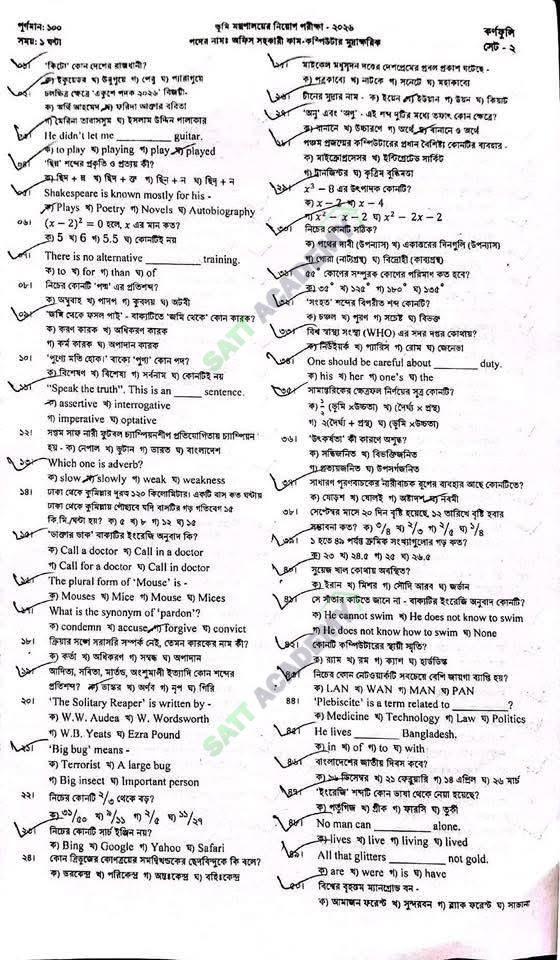 পূর্ণমান: ১০০
ভূমি মন্ত্রণালয়ের নিয়োগ পরীক্ষা - ২০২৬
কর্ণফুলি
সময়: ১ ঘণ্টা
পদের নাম: অফিস সহকারী কাম-কম্পিউটার মুদ্রাক্ষরিক
সেট - ২
০১। 'কিটো' কোন দেশের রাজধানী?
ক) ইকুয়েডর খ) উরুগুয়ে গ) পেরু ঘ) প্যারাগুয়ে
০২। চলচ্চিত্র ক্ষেত্রে 'একুশে পদক ২০২৬' বিজয়ী-
ক) জর্জি আহমেদ খ) ফরিদা আক্তার ববিতা
গ) মেরিনা তাবাসসুম ঘ) ইসলাম উদ্দিন পালাকার
০৩। He didn't let me ______ guitar.
ক) to play খ) playing গ) play ঘ) played
০৪। 'ছিন্ন' শব্দের প্রকৃতি ও প্রত্যয় কী?
০৫। Shakespeare is known mostly for his -
ক) Plays খ) Poetry গ) Novels ঘ) Autobiography
০৬। (x − 2)² = 0 হলে, x এর মান কত?
ক) 5 খ) 6 গ) 5.5 ঘ) কোনটিই নয়
০৭। There is no alternative ______ training.
ক) to খ) for গ) than ঘ) of
০৮। নিচের কোনটি 'পদ্ম' এর প্রতিশব্দ?
ক) অম্বুবাহ খ) পাদপ গ) কুবলয় ঘ) অটবী
০৯। 'জমি থেকে ফসল পাই' - বাক্যটিতে 'জমি থেকে' কোন কারক?
ক) করণ কারক খ) অধিকরণ কারক
গ) কর্ম কারক ঘ) অপাদান কারক
১০। 'পুণ্যে মতি হোক।' বাক্যে 'পুণ্য' কোন পদ?
ক) বিশেষণ খ) বিশেষ্য গ) সর্বনাম ঘ) কোনটিই নয়
১১। "Speak the truth". This is an ______ sentence.
ক) assertive খ) interrogative
গ) imperative ঘ) optative
১২। সপ্তম সাফ নারী ফুটবল চ্যাম্পিয়নশীপ প্রতিযোগিতায় চ্যাম্পিয়ন
হয় - ক) নেপাল খ) ভুটান গ) ভারত ঘ) বাংলাদেশ
১৩। Which one is adverb?
ক) slow খ) slowly গ) weak ঘ) weakness
১৪। ঢাকা থেকে কুমিল্লার দূরত্ব ১২০ কিলোমিটার। একটি বাস কত ঘণ্টায়
ঢাকা থেকে কুমিল্লায় পৌছাবে যদি বাসটির গড় গতিবেগ ১৫
কি.মি./ঘণ্টা হয়? ক) ৫ খ) ৮ গ) ১২ ঘ) ১৫
১৫। 'ডাক্তার ডাক' বাক্যটির ইংরেজি অনুবাদ কি?
ক) Call a doctor খ) Call in a doctor
গ) Call for a doctor ঘ) Call in doctor
১৬। The plural form of 'Mouse' is -
ক) Mouses খ) Mice গ) Mouse ঘ) Mices
১৭। What is the synonym of 'pardon'?
ক) condemn খ) accuse গ) forgive ঘ) convict
১৮। ক্রিয়ার সঙ্গে সরাসরি সম্পর্ক নেই, তেমন কারকের নাম কী?
ক) কর্তা খ) অধিকরণ গ) সম্বন্ধ ঘ) অপাদান
১৯। আদিত্য, সবিতা, মার্তন্ড, অংশুমালী ইত্যাদি কোন শব্দের
প্রতিশব্দ? ক) ভাস্কর খ) অর্ণব গ) নৃপ ঘ) গিরি
২০। 'The Solitary Reaper' is written by -
ক) W.W. Audea খ) W. Wordsworth
গ) W.B. Yeats ঘ) Ezra Pound
২১। 'Big bug' means -
ক) Terrorist খ) A large bug
গ) Big insect ঘ) Important person
২২। নিচের কোনটি ২/৩ থেকে বড়?
ক) ৩১/৫০ খ) ৯/১১ গ) ২/৫ ঘ) ১১/২৭
২৩। নিচের কোনটি সার্চ ইঞ্জিন নয়?
ক) Bing খ) Google গ) Yahoo ঘ) Safari
২৪। কোন ত্রিভুজের কোণত্রয়ের সমদ্বিখন্ডকের ছেদবিন্দুকে কি বলে?
ক) ভরকেন্দ্র খ) পরিকেন্দ্র গ) অন্তঃকেন্দ্র ঘ) বহিঃকেন্দ্র
২৫। মাইকেল মধুসূদন দত্তের দেশপ্রেমের প্রবল প্রকাশ ঘটেছে -
ক) পত্রকাব্যে খ) নাটকে গ) সনেটে ঘ) মহাকাব্যে
২৬। চীনের মুদ্রার নাম - ক) ইয়েন খ) ইউয়ান গ) উয়ন ঘ) কিয়াট
২৭। 'অনু' এবং 'অণু' - এই শব্দ দুটির মধ্যে তফাৎ কোন ক্ষেত্রে?
ক) বানানে খ) উচ্চারণে গ) অর্থে ঘ) বানানে ও অর্থে
২৮। পঞ্চম প্রজন্মের কম্পিউটারের প্রধান বৈশিষ্ট্য কোনটির ব্যবহার -
ক) মাইক্রোপ্রসেসর খ) ইন্টিগ্রেটেড সার্কিট
গ) ট্রানজিস্টর ঘ) কৃত্রিম বুদ্ধিমত্তা
২৯। x³ − 8 এর উৎপাদক কোনটি?
ক) x − 2 খ) x − 4
গ) x² − x − 2 ঘ) x² − 2x − 2
৩০। নিচের কোনটি সঠিক?
ক) পথের দাবী (উপন্যাস) খ) একাত্তরের দিনগুলি (উপন্যাস)
গ) গোরা (নাট্যগ্রন্থ) ঘ) বিদ্রোহী (কাব্যগ্রন্থ)
৩১। ৫৫° কোণের সম্পূরক কোণের পরিমাণ কত হবে?
ক) ৩৫° খ) ১২৫° গ) ১৮০° ঘ) ১৩৫°
৩২। 'সংহত' শব্দের বিপরীত শব্দ কোনটি?
ক) চঞ্চল খ) পূরণ গ) সচেষ্ট ঘ) বিভক্ত
৩৩। বিশ্ব স্বাস্থ্য সংস্থা (WHO) এর সদর দপ্তর কোথায়?
ক) নিউইয়র্ক খ) প্যারিস গ) রোম ঘ) জেনেভা
৩৪। One should be careful about ______ duty.
ক) his খ) her গ) one's ঘ) the
৩৫। সামান্তরিকের ক্ষেত্রফল নির্ণয়ের সূত্র কোনটি?
ক) ½ (ভূমি ×উচ্চতা) খ) (দৈর্ঘ্য × প্রস্থ)
গ) ২(দৈর্ঘ্য + প্রস্থ) ঘ) (ভূমি ×উচ্চতা)
৩৬। 'উৎকর্ষতা' কী কারণে অশুদ্ধ?
ক) সন্ধিজনিত খ) বিভক্তিজনিত
গ) প্রত্যয়জনিত ঘ) উপসর্গজনিত
৩৭। সাধারণ পূরণবাচকের নারীবাচক রূপের ব্যবহার আছে কোনটিতে?
ক) ষোড়শ খ) ষোলই গ) অষ্টাদশ ঘ) নবমী
৩৮। সেপ্টেম্বর মাসে ২০ দিন বৃষ্টি হয়েছে, ১২ তারিখে বৃষ্টি হবার
সম্ভাবনা কত? ক) ৩/৪ খ) ২/৩ গ) ২/৫ ঘ) ১/৪
৩৯। ১ হতে ৪৯ পর্যন্ত ক্রমিক সংখ্যাগুলোর গড় কত?
ক) ২৩ খ) ২৪.৫ গ) ২৫ ঘ) ২৬.৫
৪০। সুয়েজ খাল কোথায় অবস্থিত?
ক) ইরান খ) মিশর গ) সৌদি আরব ঘ) জর্ডান
৪১। সে সাঁতার কাটতে জানে না - বাক্যটির ইংরেজি অনুবাদ কোনটি?
ক) He cannot swim খ) He does not know to swim
গ) He does not know how to swim ঘ) None
৪২। কোনটি কম্পিউটারের স্থায়ী স্মৃতি?
ক) র‍্যাম খ) রম গ) ক্যাশ ঘ) হার্ডডিস্ক
৪৩। নিচের কোন নেটওয়ার্কটি সবচেয়ে বেশি জায়গা ব্যাপ্তি হয়?
ক) LAN খ) WAN গ) MAN ঘ) PAN
৪৪। 'Plebiscite' is a term related to ______?
ক) Medicine খ) Technology গ) Law ঘ) Politics
৪৫। He lives ______ Bangladesh.
ক) in খ) of গ) to ঘ) with
৪৬। বাংলাদেশের জাতীয় দিবস কবে?
ক) ১৬ ডিসেম্বর খ) ২১ ফেব্রুয়ারি গ) ১৪ এপ্রিল ঘ) ২৬ মার্চ
৪৭। 'ইংরেজি' শব্দটি কোন ভাষা থেকে নেয়া হয়েছে?
ক) পর্তুগিজ খ) গ্রীক গ) ফারসি ঘ) তুর্কী
৪৮। No man can ______ alone.
ক) lives খ) live গ) living ঘ) lived
৪৯। All that glitters ______ not gold.
ক) are খ) were গ) is ঘ) have
৫০। বিশ্বের বৃহত্তম ম্যানগ্রোভ বন -
ক) আমাজন ফরেস্ট খ) সুন্দরবন গ) ব্ল্যাক ফরেস্ট ঘ) সাভানা
SATT ACADEMY
SATT ACADEMY